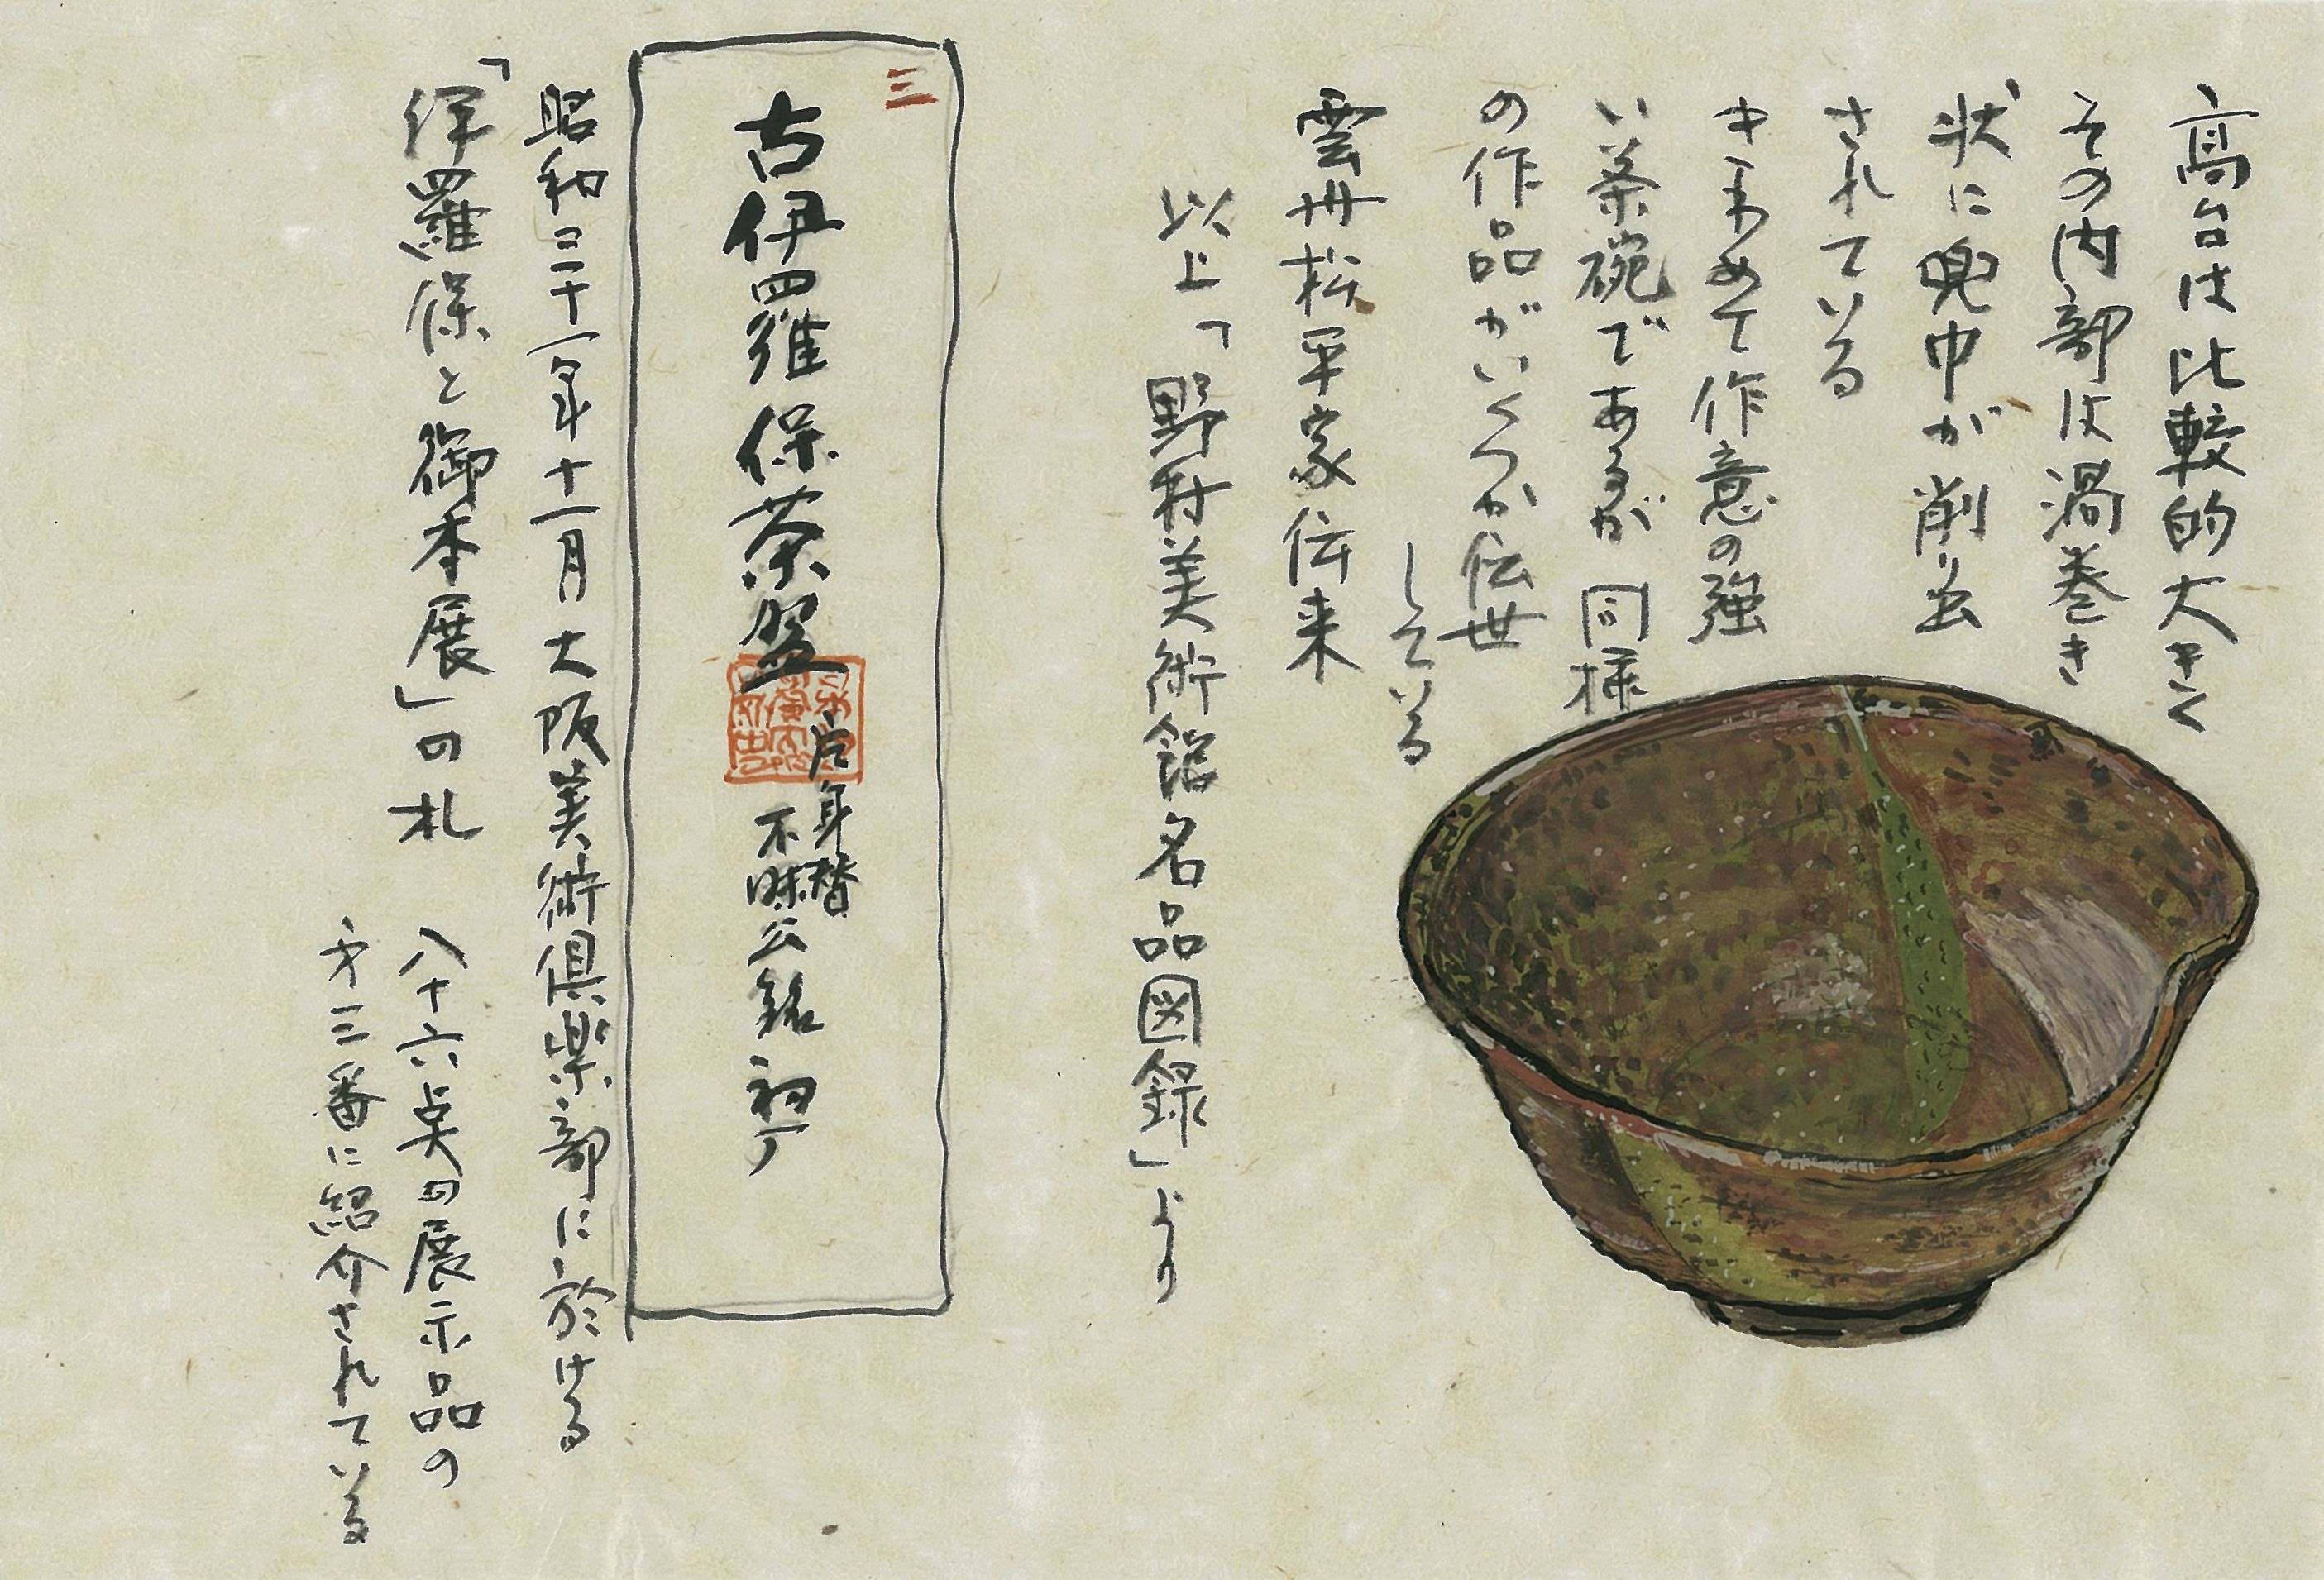 高台は比較的大きく
その内部は渦巻き
状に兜巾が削り出
されている
きわめて作意の強
い茶碗であるが同様
の作品がいくつか伝世
している
雲州松平家伝来
以上「野村美術館名品図録」より
三
古伊羅保茶盌
片身替
不昧公銘
昭和三十一年十一月大阪美術倶楽部に於ける
「伊羅保と御本展」の札
八十六点の展示品の
才三番に紹介されている